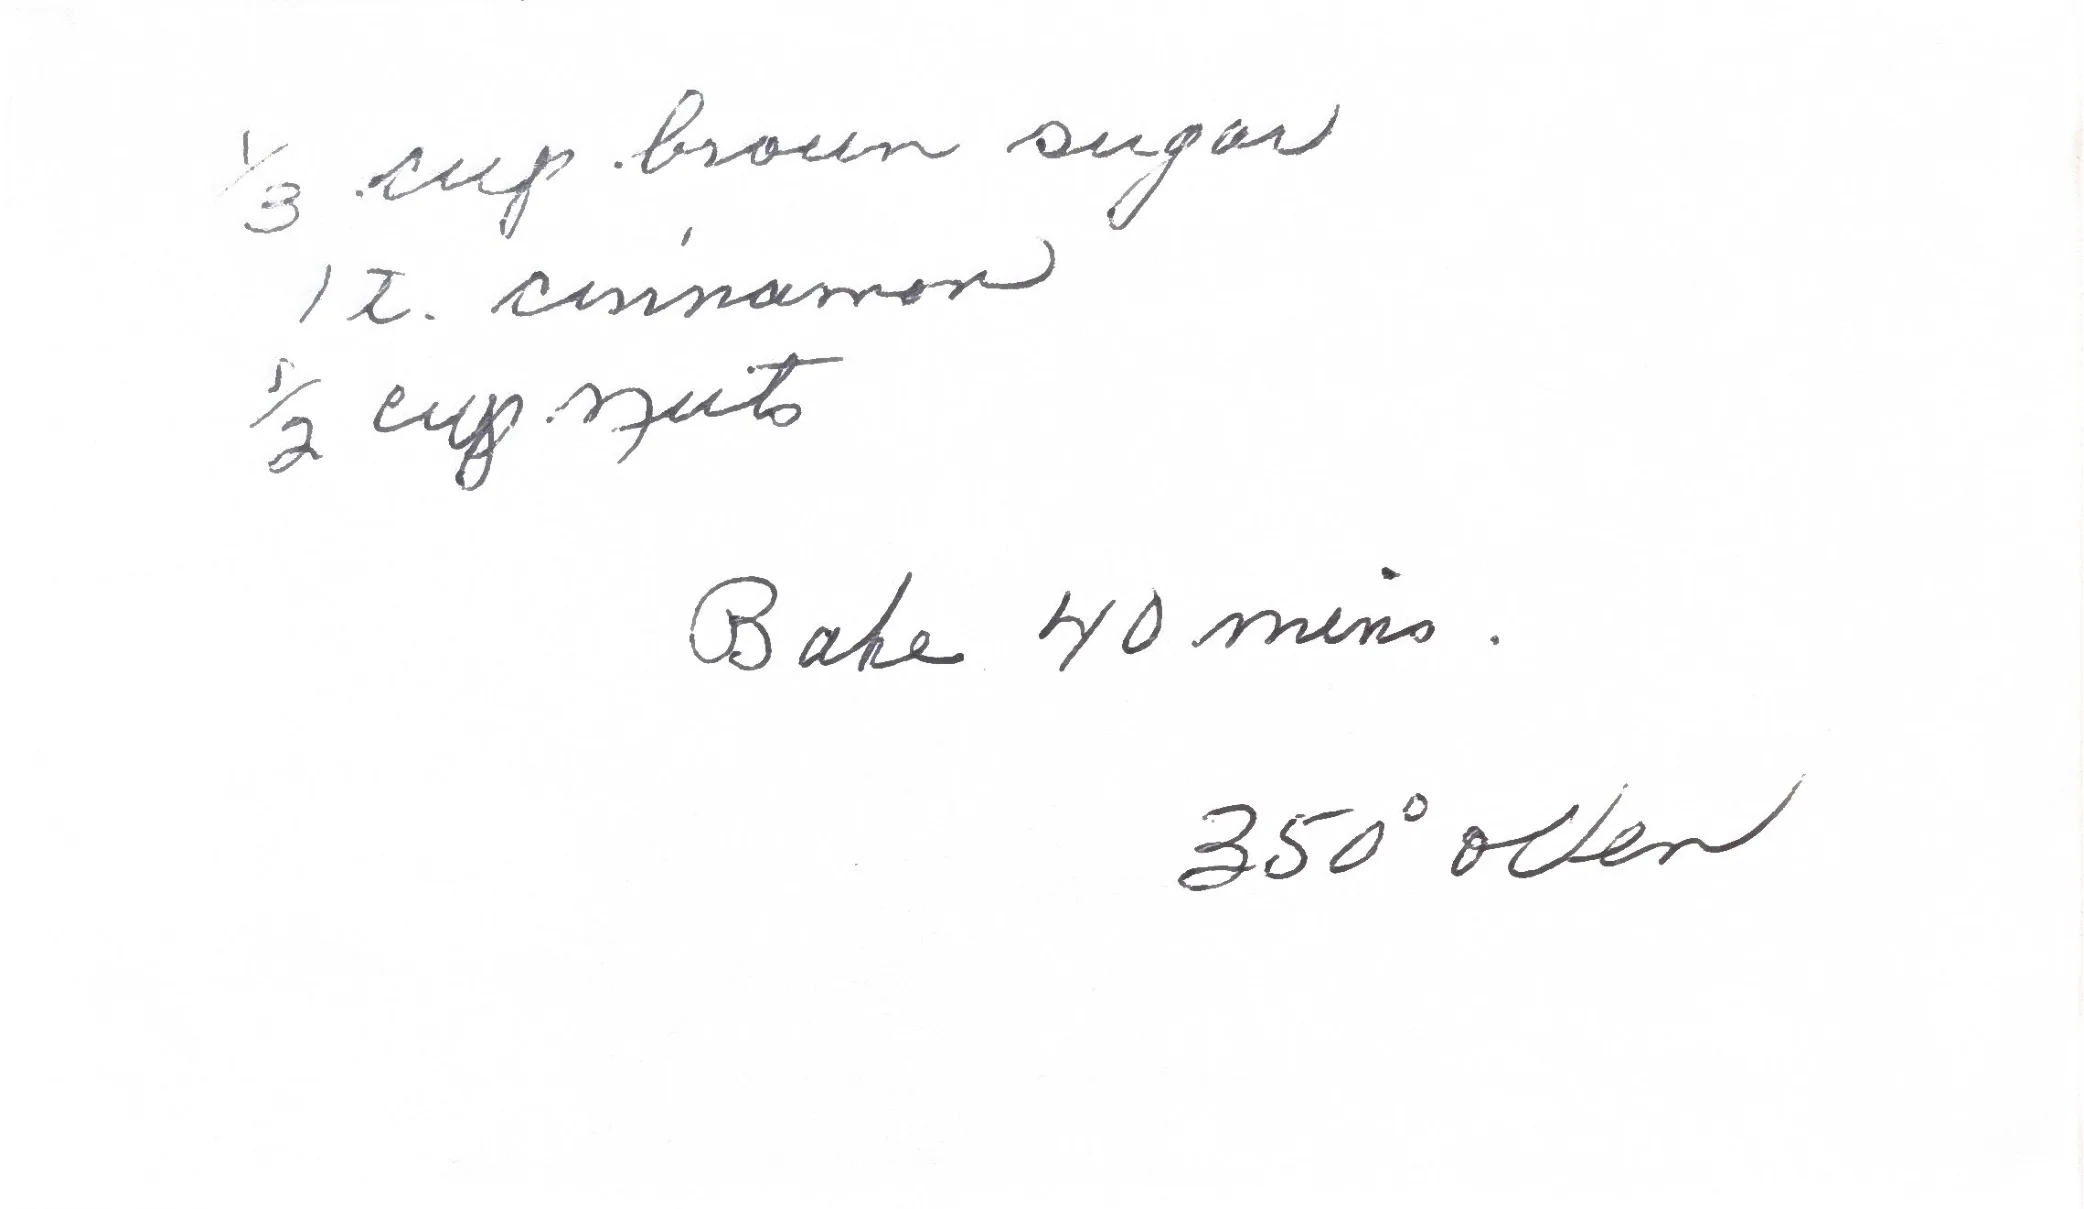 1/3 cup brown sugar
1 t. cinnamon
1/2 cup nuts
Bake 40 mins.
350° oven